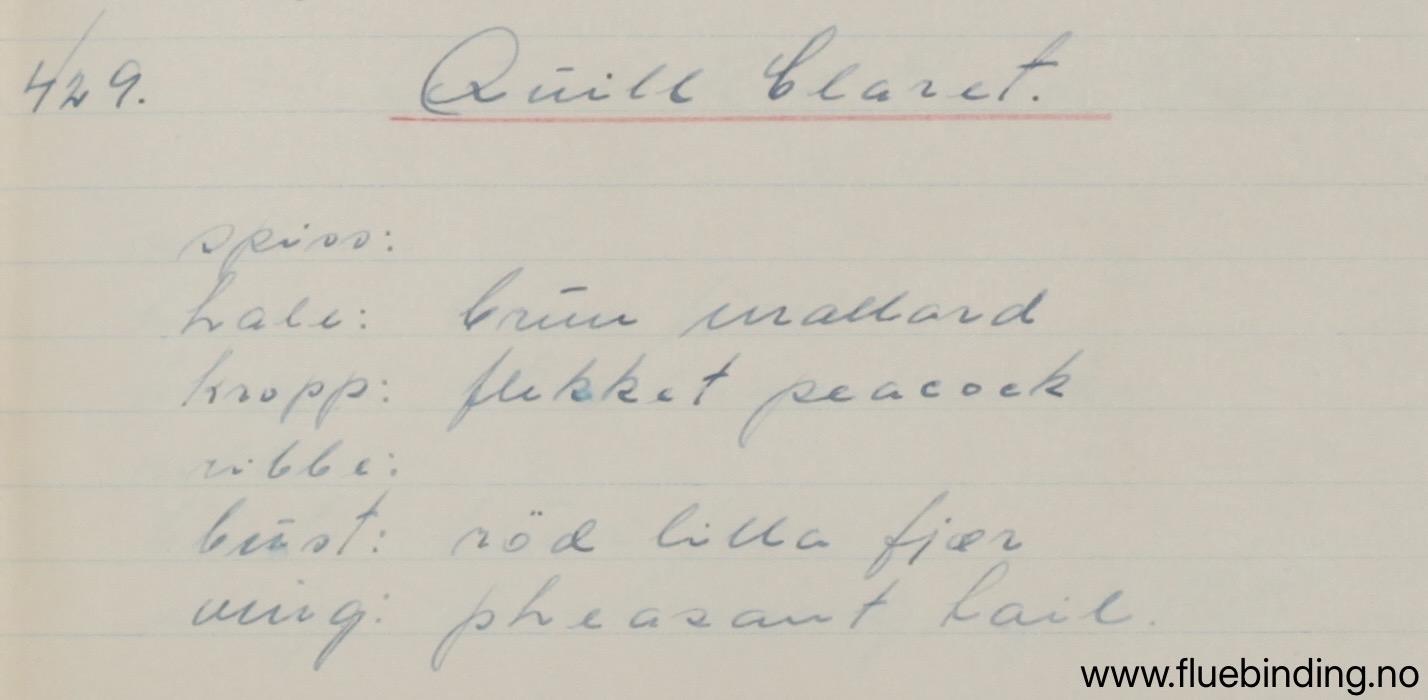 429. Quill Claret.
spiss:
hale: brun mallard
kropp: flekket peacock
ribbe:
bust: röd lilla fjær
ving: pheasant tail.
www.fluebinding.no